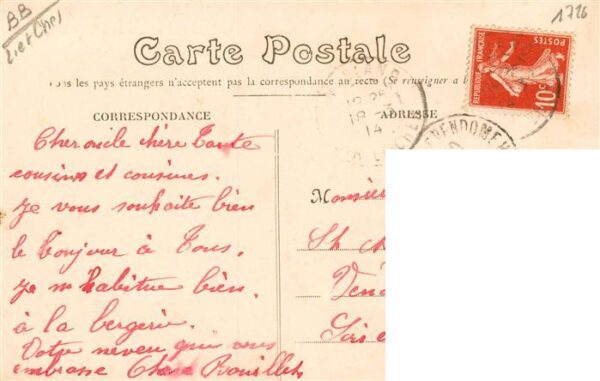 BB
1726
Carte Postale
les pays étrangers n'acceptent pas la correspondance au recto (Se renseigner a
CORRESPONDANCE
ADRESSE
RÉPUBLIQUE FRANÇAISE
POSTES
10c
VENDOME
18
14
Cher oncle chère Tante
cousins et cousines.
Je vous souhaite bien
le bonjour à Tous.
Je m habitue bien.
à la bergerie.
Votre neveu qui vous
embrasse
Monsieur